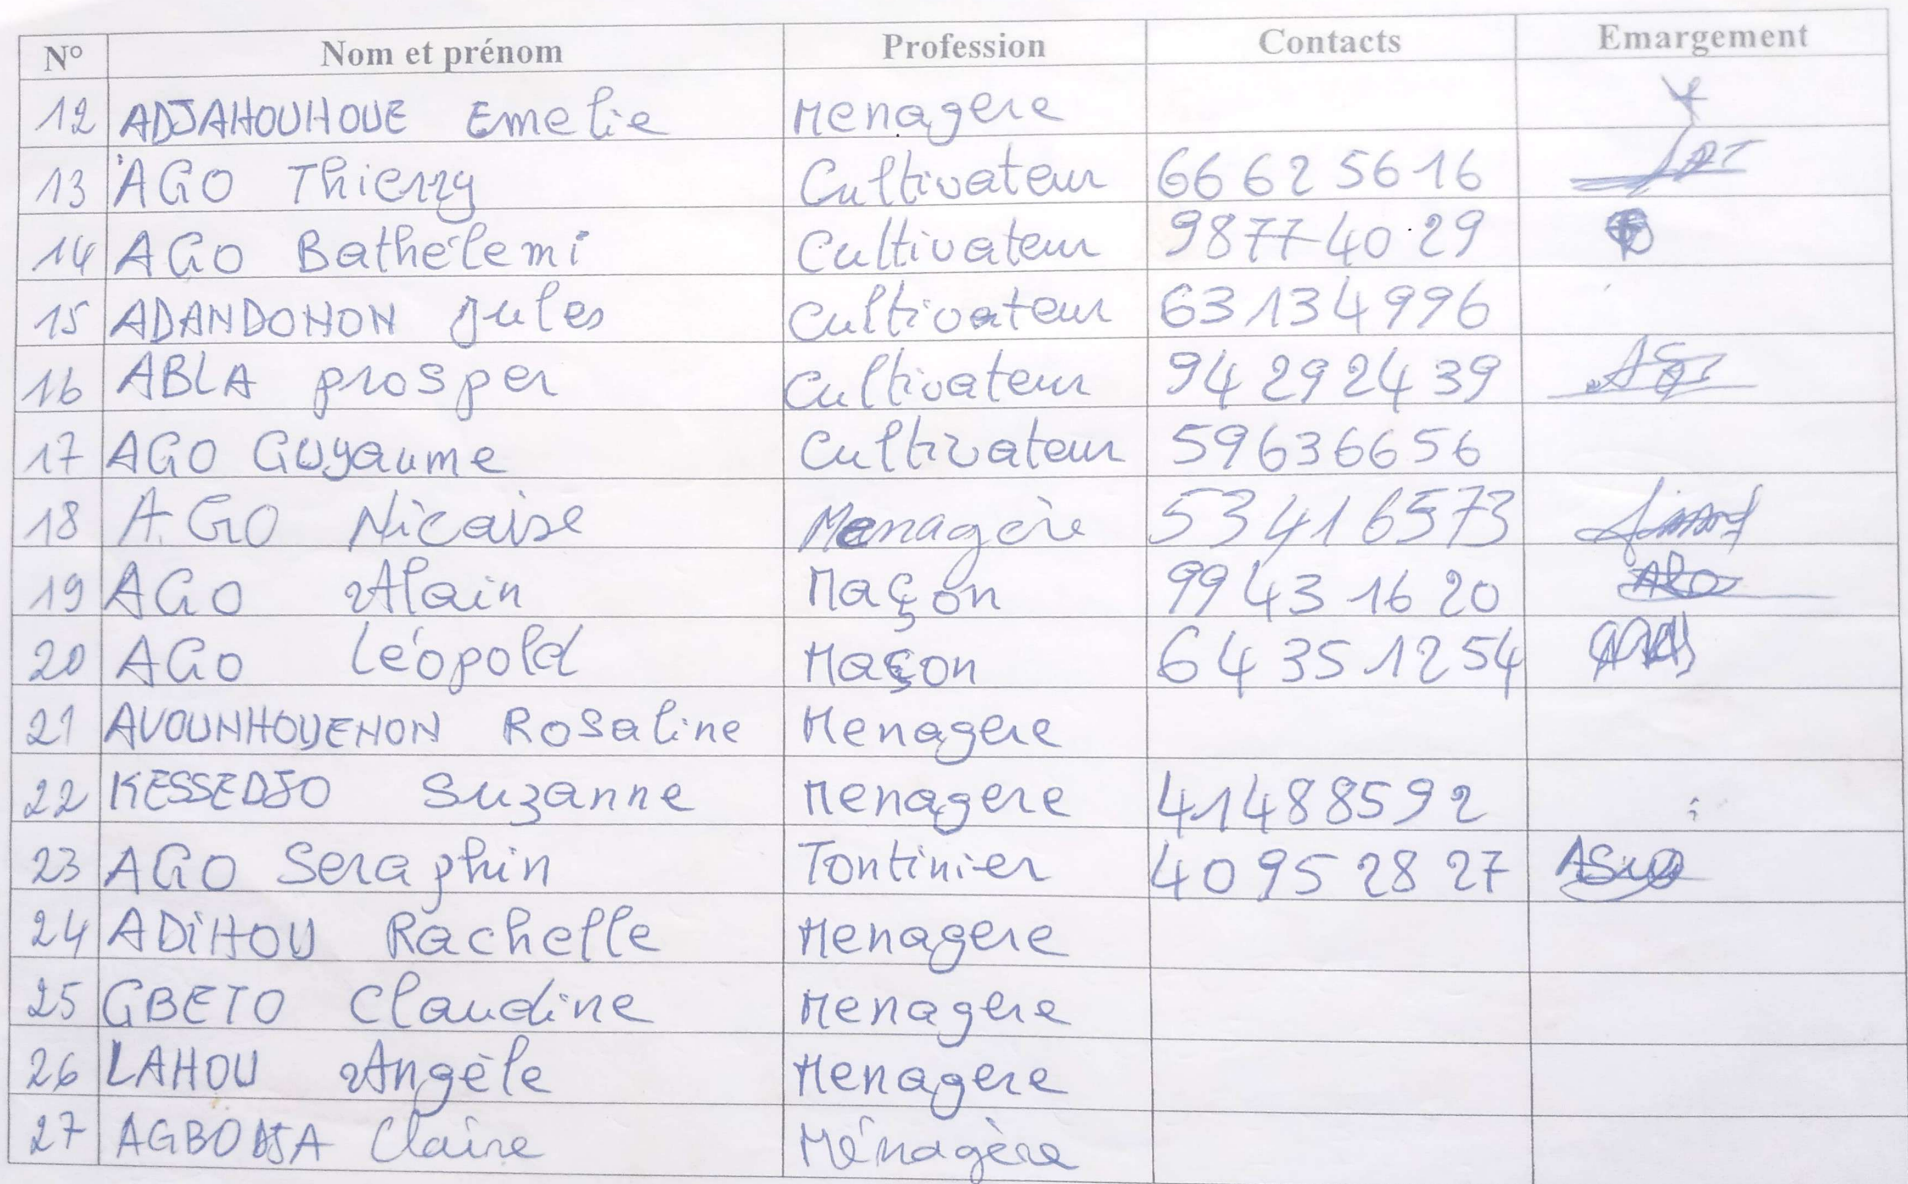 N° Nom et prénom Profession Contacts Emargement
12 ADJAHOUHOUE Emelie Menagere
13 AGO Thierry Cultivateur 66 62 56 16
14 AGO Bathélemi Cultivateur 98 77 40 29
15 ADANDOHON Jules Cultivateur 63134996
16 ABLA prosper Cultivateur 94 29 24 39
17 AGO Guyaume Cultivateur 59636656
18 A.GO Nicaise Menagère 53416573
19 AGO Alain Maçon 99 43 16 20
20 AGO Léopold Maçon 64 35 12 54
21 AVOUNHOUENON Rosaline Menagere
22 KESSEDJO Suzanne Menagere 41488592
23 AGO Seraphin Tontinier 40 95 28 27
24 ADiHOU Rachelle Menagere
25 GBETO Claudine Menagere
26 LAHOU Angèle Menagere
27 Claire Ménagère